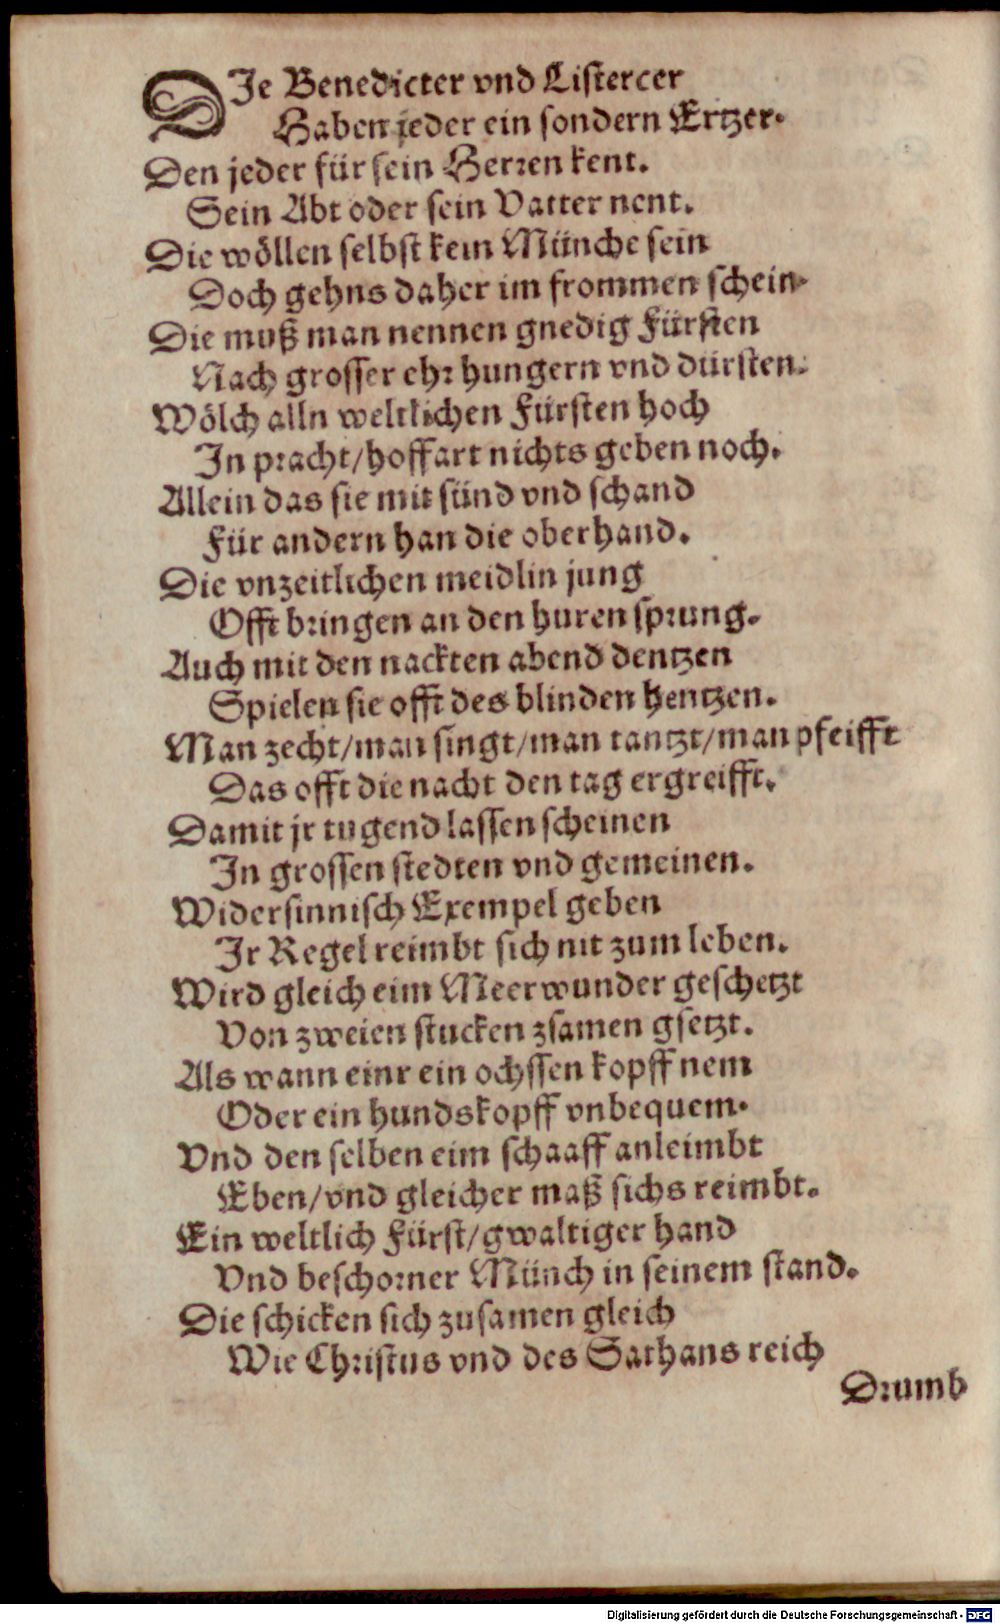 DIe Benedicter vnd Cistercer
Haben jeder ein sondern Ertzer.
Den jeder für sein Herren kent.
Sein Abt oder sein Vatter nent.
Die wöllen selbst kein Münche sein
Doch gehns daher im frommen schein.
Die muß man nennen gnedig Fürsten
Nach grosser ehr hungern vnd dürsten.
Wölch alln weltlichen Fürsten hoch
In pracht/hoffart nichts geben noch.
Allein das sie mit sünd vnd schand
Für andern han die oberhand.
Die vnzeitlichen meidlin jung
Offt bringen an den huren sprung.
Auch mit den nackten abend dentzen
Spielen sie offt des blinden hentzen.
Man zecht/man singt/man tantzt/man pfeifft
Das offt die nacht den tag ergreifft.
Damit jr tugend lassen scheinen
In grossen stedten vnd gemeinen.
Widersinnisch Exempel geben
Jr Regel reimbt sich nit zum leben.
Wird gleich eim Meerwunder geschetzt
Von zweien stucken zsamen gsetzt.
Als wann einr ein ochssen kopff nem
Oder ein hundskopff vnbequem.
Vnd den selben eim schaaff anleimbt
Eben/vnd gleicher maß sichs reimbt.
Ein weltlich Fürst/gwaltiger hand
Vnd beschorner Münch in seinem stand.
Die schicken sich zusamen gleich
Wie Christus vnd des Sathans reich
Drumb
Digitalisierung gefördert durch die Deutsche Forschungsgemeinschaft - DFG